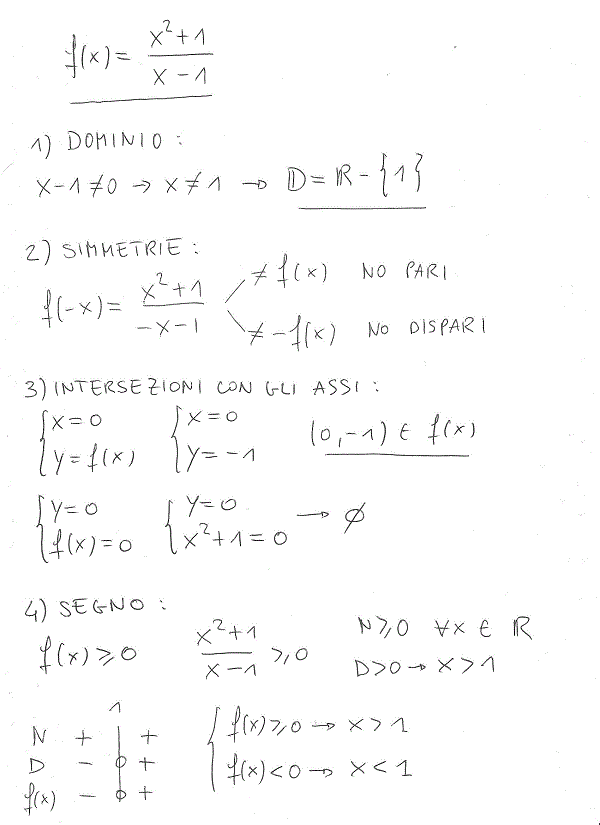 f(x) = (x²+1)/(x-1)
1) DOMINIO :
x-1≠0 → x≠1 → D = ℝ - {1}
2) SIMMETRIE :
f(-x) = (x²+1)/(-x-1)
≠ f(x) NO PARI
≠ -f(x) NO DISPARI
3) INTERSEZIONI CON GLI ASSI :
{ x=0 { x=0
{ y=f(x) { y=-1 (0,-1) ∈ f(x)
{ y=0 { y=0
{ f(x)=0 { x²+1=0 → ∅
4) SEGNO :
f(x)≥0 (x²+1)/(x-1) ≥0 N≥0 ∀x ∈ ℝ
D>0 → x>1
1
N + | +
D - | +
f(x) - | +
{ f(x)≥0 → x>1
{ f(x)<0 → x<1